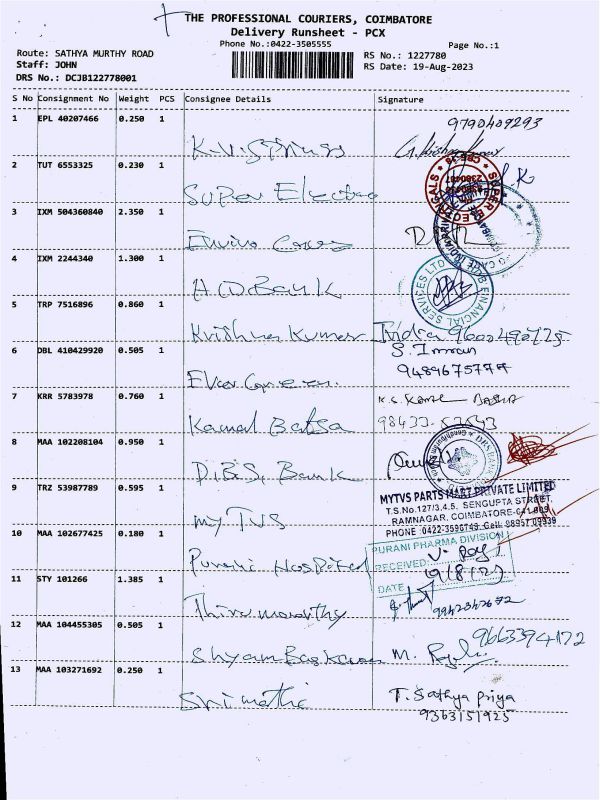 THE PROFESSIONAL COURIERS, COIMBATORE
Delivery Runsheet - PCX
Phone No.:0422-3505555
Page No.:1
Route: SATHYA MURTHY ROAD
Staff: JOHN
DRS No.: DCJB122778001
RS No.: 1227780
RS Date: 19-Aug-2023
S No Consignment No Weight PCS Consignee Details Signature
1 EPL 40207466 0.250 1
9790409293
2 TUT 6553325 0.230 1
Super Electro
SUPER ELECTRICALS
3 IXM 504360840 2.350 1
Enviro Cares
4 IXM 2244340 1.300 1
Bank
HDB FINANCIAL SERVICES LTD
5 TRP 7516896 0.860 1
Krishna Kumar Indra
6 DBL 410429920 0.505 1
S. Imran
7 KRR 5783978 0.760 1
Kamal Batsa
8 MAA 102208104 0.950 1
D.B.S. Bank
9 TRZ 53987789 0.595 1
My TVS
MYTVS PARTS MART PRIVATE LIMITED
T.S.No.127/3,4,5, SENGUPTA STREET,
RAMNAGAR, COIMBATORE-641 009
10 MAA 102677425 0.180 1
Purani Hospital
PURANI PHARMA DIVISION
RECEIVED:
DATE 19/8/23
11 STY 101266 1.385 1
Thirumoorthy
12 MAA 104455305 0.505 1
Shyam Baskaran
13 MAA 103271692 0.250 1
Srimathi
T. Sathya priya
9363151925